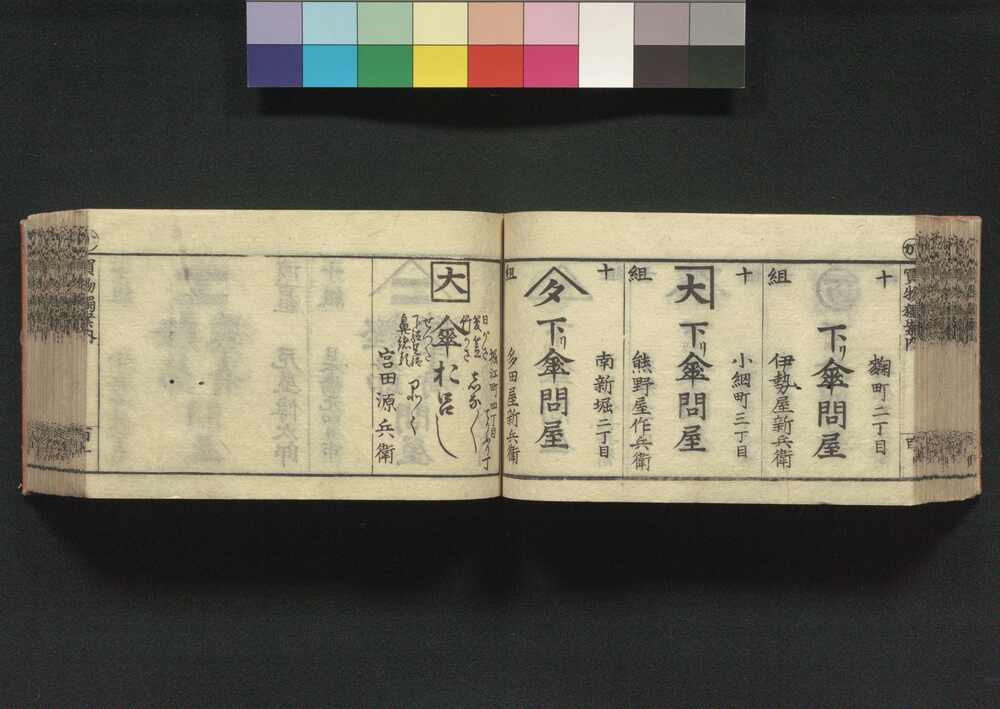 買物獨案内
十組
麹町二丁目
下リ傘問屋
伊勢屋新兵衛
十組
小網町三丁目
大
下リ傘問屋
熊野屋作兵衛
十組
南新堀二丁目
タ
下リ傘問屋
多田屋新兵衛
堀江町四丁目
日がさ
大
傘おろし
宮田源兵衛
買物獨案内